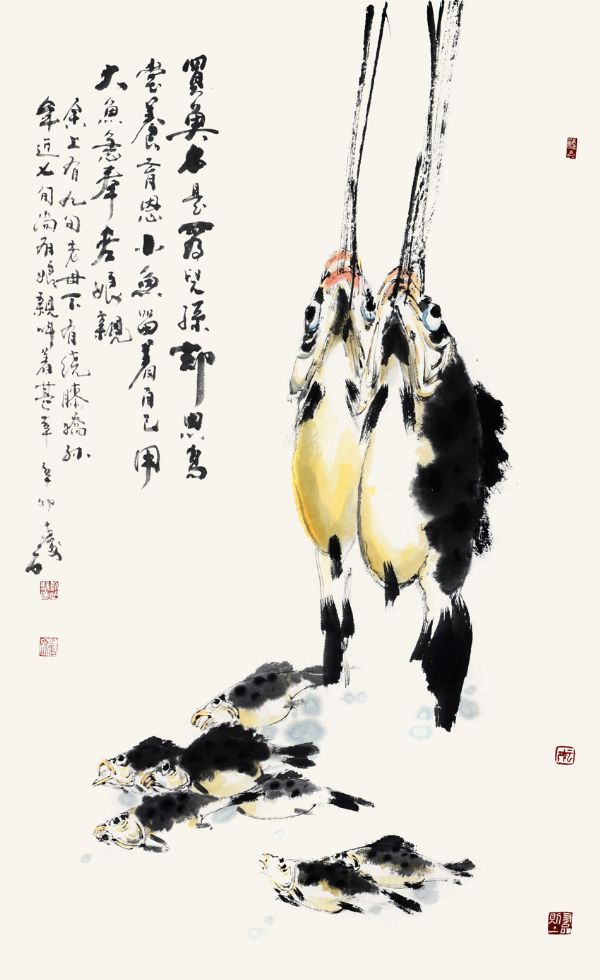 買魚不是為兒孫却思高
堂養育恩小魚留着自己用
大魚急奉老娘親
余上有九旬老母下有绕膝嬌孙
年近七旬尚有娘親呼着甚幸辛卯